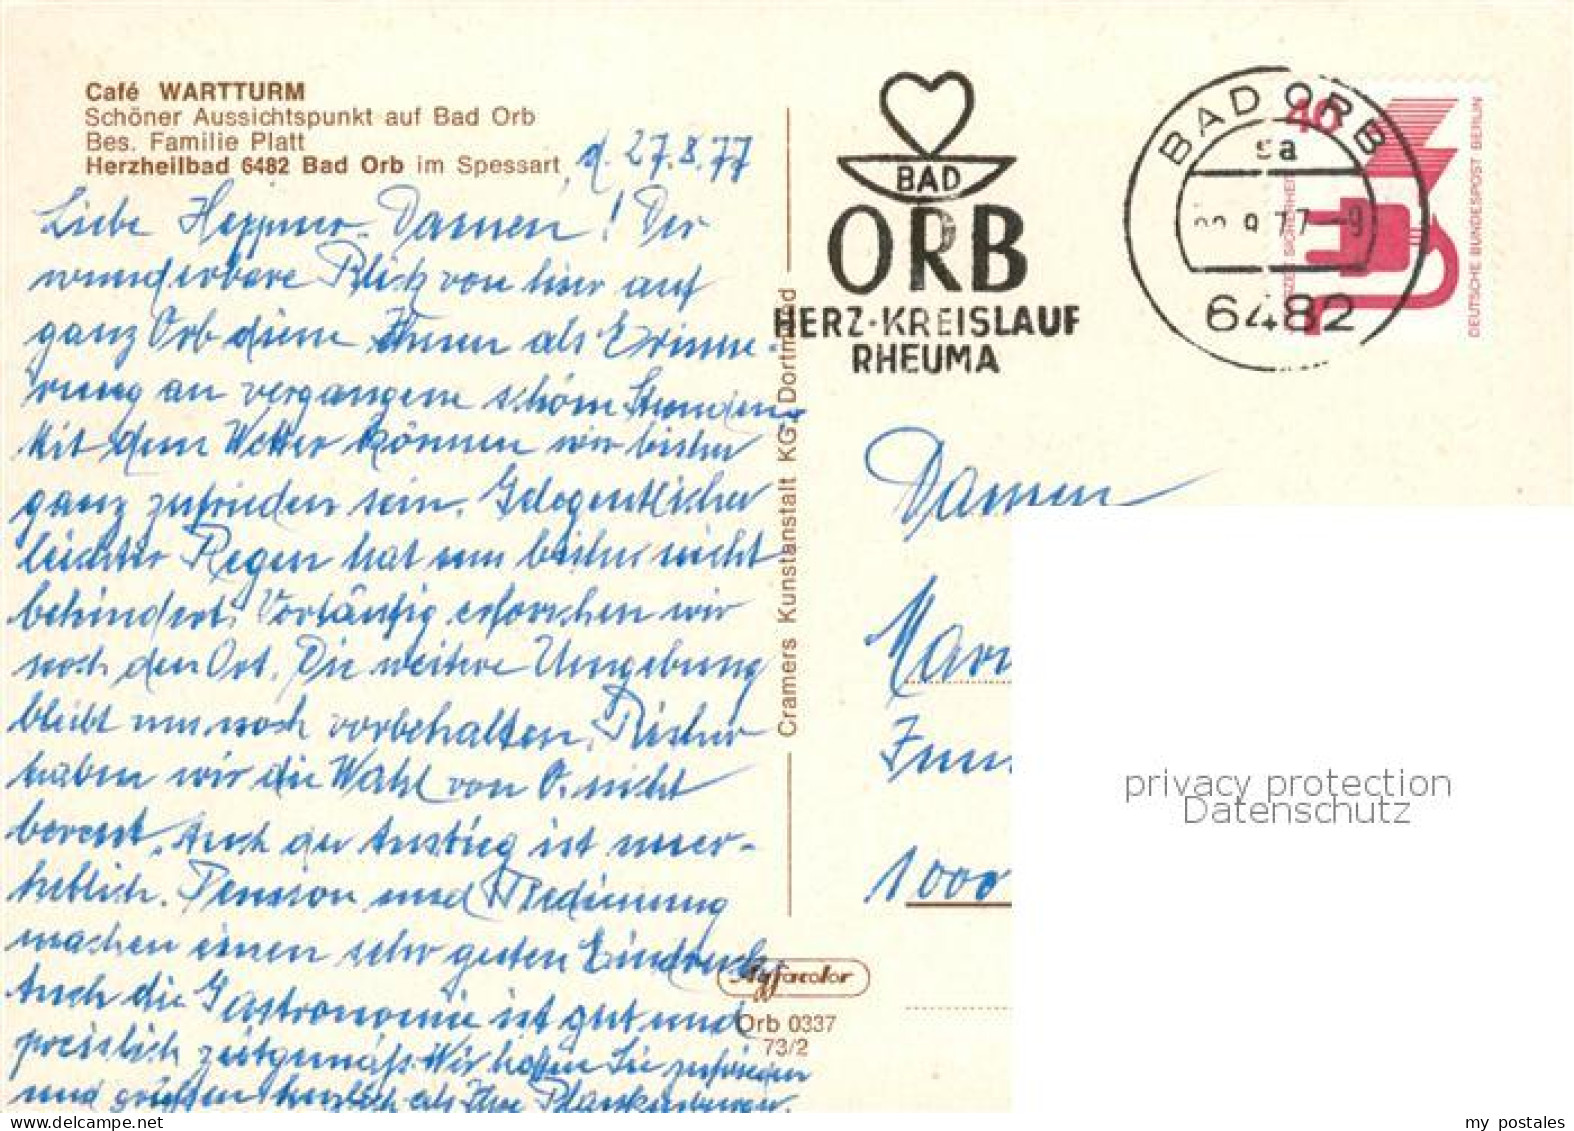 Café WARTTURM
Schöner Aussichtspunkt auf Bad Orb
Bes. Familie Platt
Herzheilbad 6482 Bad Orb im Spessart
d. 27.8.77
Liebe Heppner-Damen! Der
wunderbare Blick von hier auf
ganz Orb diene Ihnen als Erinne-
rung an vergangene schöne Stunden.
Mit dem Wetter können wir bisher
ganz zufrieden sein. Gelegentlicher
leichter Regen hat uns bisher nicht
behindert. Vorläufig erforschen wir
noch den Ort. Die weitere Umgebung
bleibt uns noch vorbehalten. Bisher
haben wir die Wahl von O. nicht
bereut. Auch der Anstieg ist uner-
heblich. Pension und Bedienung
machen einen sehr guten Eindruck
Auch die Gastronomie ist gut und
preislich zeitgemäß. Wir hoffen Sie zufrieden
und grüßen herzlich als Ihre
Cramers Kunstanstalt KG, Dortmund
Agfacolor
Orb 0337
73/2
BAD
ORB
HERZ-KREISLAUF
RHEUMA
BAD ORB
sa
9.77-9
6482
40
DEUTSCHE BUNDESPOST BERLIN
Damen
1000
privacy protection
Datenschutz
my postales